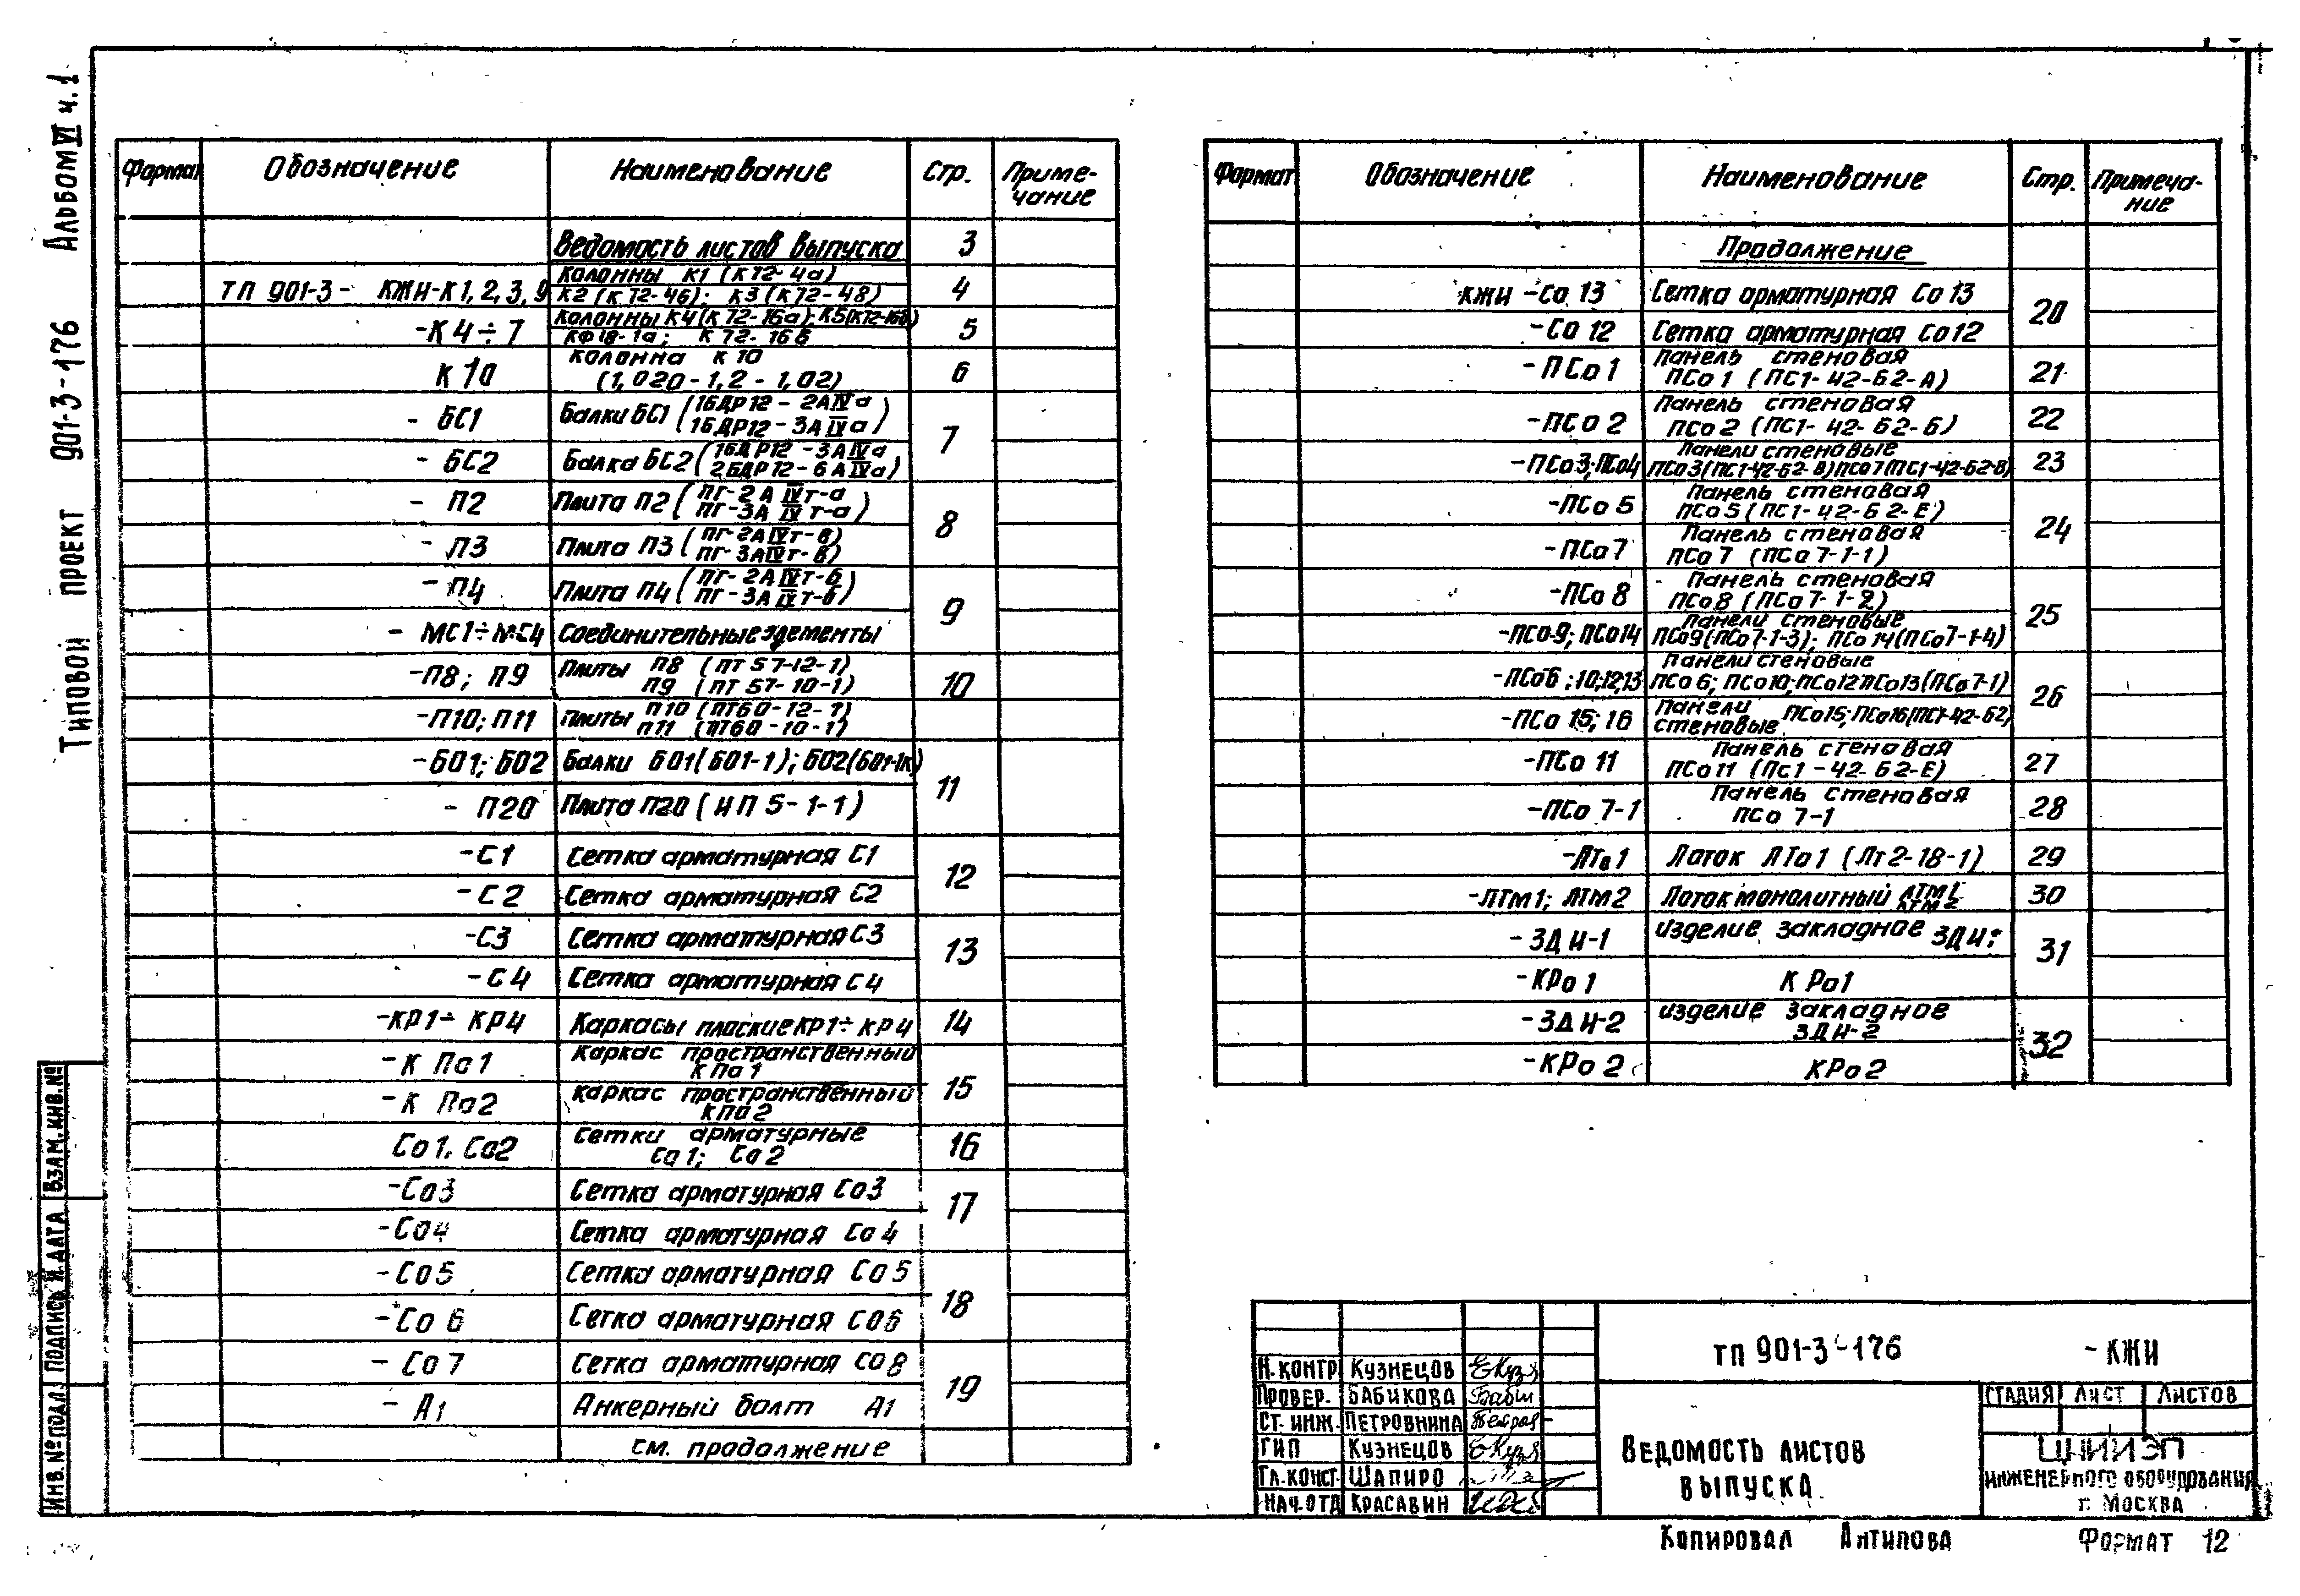 Типовой проект 901-3-176 Альбом VI ч.1
Формат Обозначение Наименование Стр. Приме-
чание
Ведомость листов выпуска 3
ТП 901-3- КЖИ-К1, 2, 3, 9 Колонны К1 (К72-4а)
К2 (К72-4б); К3 (К72-4в) 4
-К4÷7 Колонны К4 (К72-16а); К5(К72-16б)
КФ18-1а; К72-16в 5
К10 Колонна К10
(1,020-1,2-1,02) 6
- БС1 Балки БС1 (1БДР12-2АIVа
1БДР12-3АIVа) 7
- БС2 Балка БС2 (1БДР12-3АIVа
2БДР12-6АIVа)
- П2 Плита П2 (ПГ-2АIVт-а
ПГ-3АIVт-а) 8
- П3 Плита П3 (ПГ-2АIVт-в)
ПГ-3АIVт-в)
- П4 Плита П4 (ПГ-2АIVт-б
ПГ-3АIVт-б) 9
- МС1÷МС4 Соединительные элементы
-П8; П9 Плиты П8 (ПТ57-12-1)
П9 (ПТ57-10-1) 10
-П10; П11 Плиты П10 (ПТ60-12-1)
П11 (ПТ60-10-1)
-Б01; Б02 Балки Б01(Б01-1); Б02(Б01-1К) 11
- П20 Плита П20 (ИП5-1-1)
-С1 Сетка арматурная С1 12
-С2 Сетка арматурная С2
-С3 Сетка арматурная С3 13
-С4 Сетка арматурная С4
-КР1÷КР4 Каркасы плоские КР1÷КР4 14
-К По1 Каркас пространственный
КПо1 15
-К По2 Каркас пространственный
КПо2
Со1. Со2 Сетки арматурные
Со1; Со2 16
-Со3 Сетка арматурная Со3 17
-Со4 Сетка арматурная Со4
-Со5 Сетка арматурная Со5 18
-Со6 Сетка арматурная Со6
- Со7 Сетка арматурная Со8 19
- А1 Анкерный болт А1
см. продолжение
Формат Обозначение Наименование Стр. Примеча-
ние
Продолжение
КЖИ -Со13 Сетка арматурная Со13 20
-Со12 Сетка арматурная Со12
-ПСо1 Панель стеновая
ПСо1 (ПС1-42-Б2-А) 21
-ПСо2 Панель стеновая
ПСо2 (ПС1-42-Б2-Б) 22
-ПСо3; ПСо4 Панели стеновые
ПСо3(ПС1-42-Б2-В) ПСо7(ПС1-42-Б2-В) 23
-ПСо5 Панель стеновая
ПСо5 (ПС1-42-Б2-Е) 24
-ПСо7 Панель стеновая
ПСо7 (ПСо7-1-1)
-ПСо8 Панель стеновая
ПСо8 (ПСо7-1-2) 25
-ПСо9; ПСо14 Панели стеновые
ПСо9(ПСо7-1-3); ПСо14(ПСо7-1-4)
-ПСо6;10;12;13 Панели стеновые
ПСо6; ПСо10; ПСо12 ПСо13(ПСо7-1) 26
-ПСо15; 16 Панели
стеновые ПСо15; ПСо16(ПС1-42-Б2)
-ПСо11 Панель стеновая
ПСо11 (ПС1-42-Б2-Е) 27
-ПСо7-1 Панель стеновая
ПСо7-1 28
-ЛТо1 Лоток ЛТо1 (Лт2-18-1) 29
-ЛТм1; ЛТм2 Лоток монолитный ЛТМ1
ЛТМ2 30
-ЗДИ-1 Изделие закладное ЗДИ 31
-КРо1 КРо1
-ЗДИ-2 Изделие закладное
ЗДИ-2 32
-КРо2 КРо2
Взам. инв. №
Подпись и дата
Инв. № подл.
Н. контр Кузнецов
Провер. Бабикова
Ст. инж. Петровнина
ГИП Кузнецов
Гл. конст. Шапиро
Нач. отд Красавин
ТП 901-3-176 - КЖИ
Ведомость листов
выпуска
Стадия Лист Листов
ЦНИИЭП
инженерного оборудования
г. Москва
Копировал Антипова Формат 12